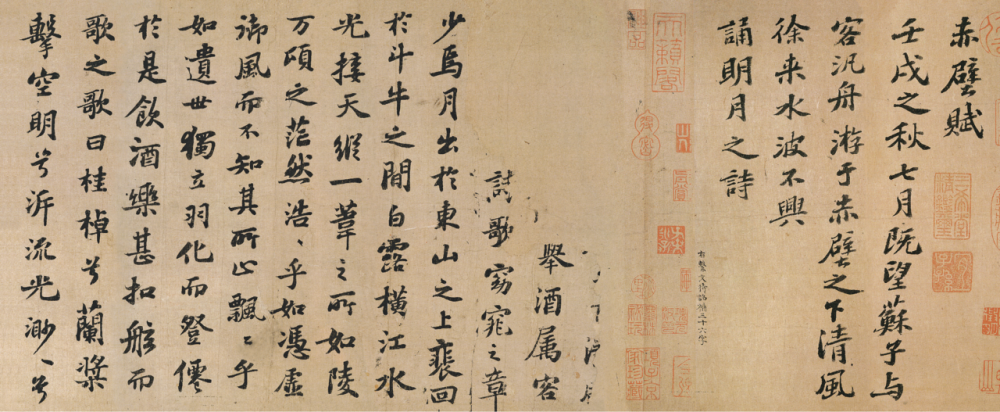 赤壁賦
壬戌之秋七月既望蘇子与
客汎舟游于赤壁之下清風
徐来水波不興
誦明月之詩
右繫文待詔補三十六字
天籟閣
舉酒属客
詩歌窈窕之章
少焉月出於東山之上裴回
於斗牛之間白露横江水
光接天縱一葦之所如陵
万頃之茫然浩〻乎如馮虚
御風而不知其所止飄〻乎
如遺世獨立羽化而登僊
於是飲酒樂甚扣舷而
歌之歌曰桂棹兮蘭槳
擊空明兮泝流光渺〻兮